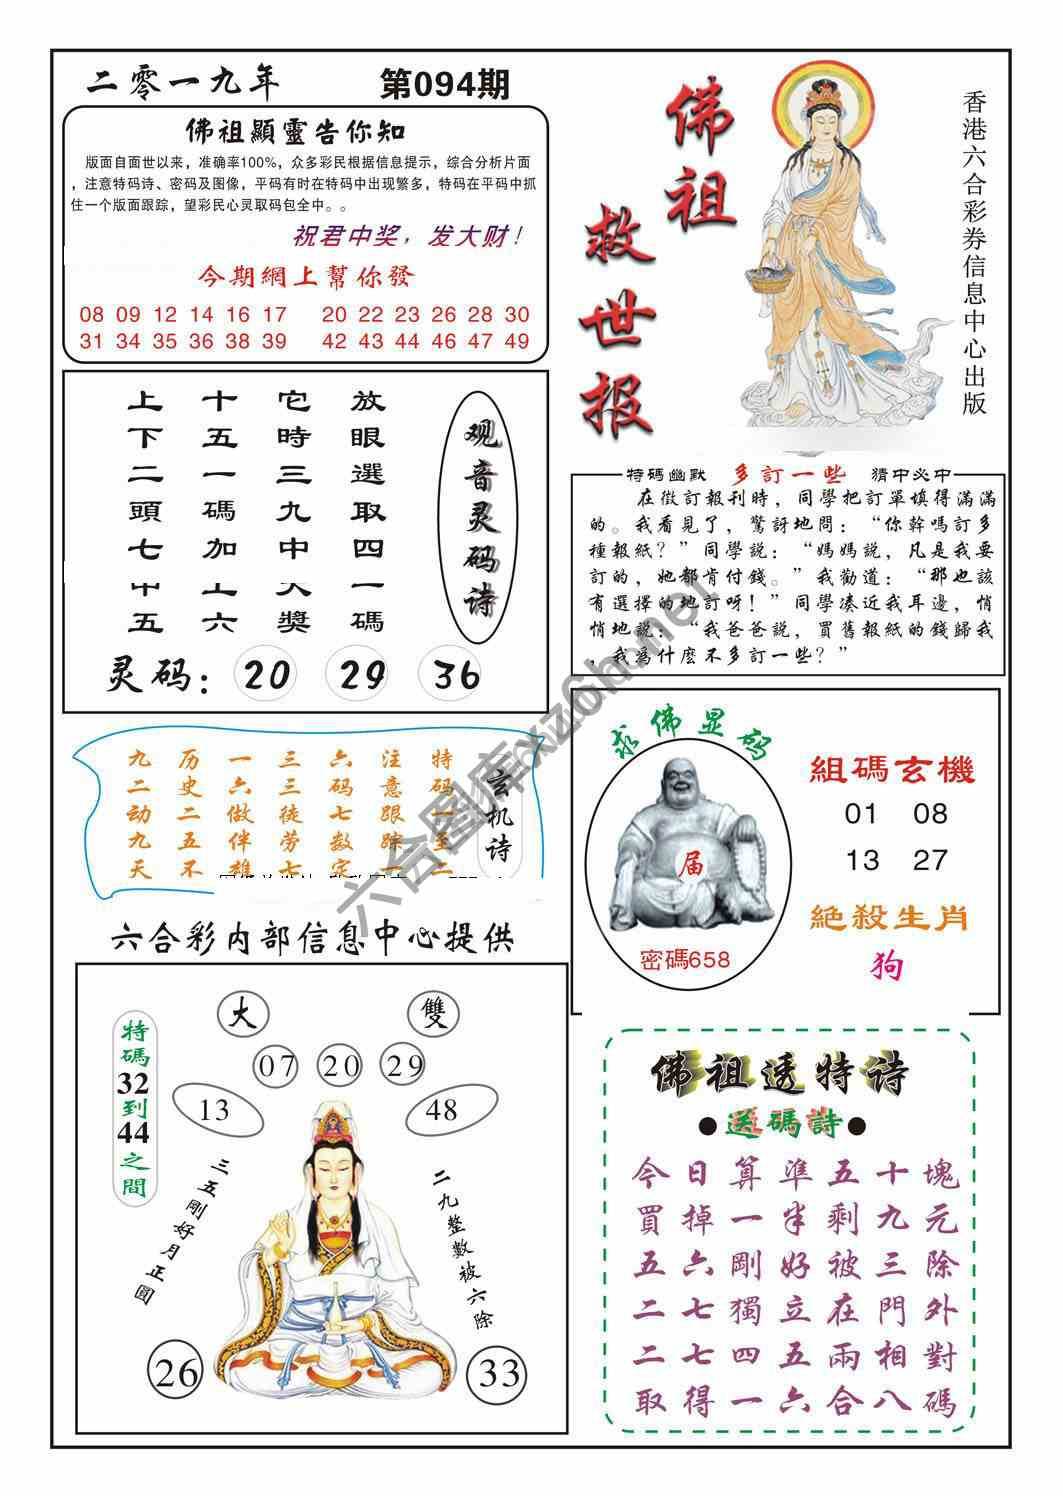 二零一九年
第094期
佛祖顯靈告你知
版面自面世以来，准确率100%，众多彩民根据信息提示，综合分析片面
，注意特码诗、密码及图像，平码有时在特码中出现繁多，特码在平码中抓
住一个版面跟踪，望彩民心灵取码包全中。。
祝君中奖，发大财！
今期網上幫你發
08 09 12 14 16 17 20 22 23 26 28 30
31 34 35 36 38 39 42 43 44 46 47 49
佛祖救世报
香港六合彩券信息中心出版
观音灵码诗
放眼選取四一碼
它時三九中大獎
十五一碼加上六
上下二頭七中五
灵码：20 29 36
特碼幽默 多訂一些 猜中必中
在徵訂報刊時，同學把訂單填得滿滿
的。我看見了，驚訝地問：“你幹嗎訂多
種報紙？”同學説：“媽媽説，凡是我要
訂的，她都肯付錢。”我勸道：“那也該
有選擇的地訂呀！”同學湊近我耳邊，悄
悄地説：“我爸爸説，買舊報紙的錢歸我
，我為什麽不多訂一些？”
玄机诗
特码一至二
注意跟踪一
六码七数定
三三徒劳七
一六做伴雄
历史二五不
九二动九天
求佛显码
届
密碼658
組碼玄機
01 08
13 27
絶殺生肖
狗
六合彩内部信息中心提供
大
雙
07 20 29
13
48
特碼32到44之間
三五剛好月正圓
二九整數被六除
26
33
佛祖透特诗
●送碼詩●
今日算準五十塊
買掉一半剩九元
五六剛好被三除
二七獨立在門外
二七四五兩相對
取得一六合八碼